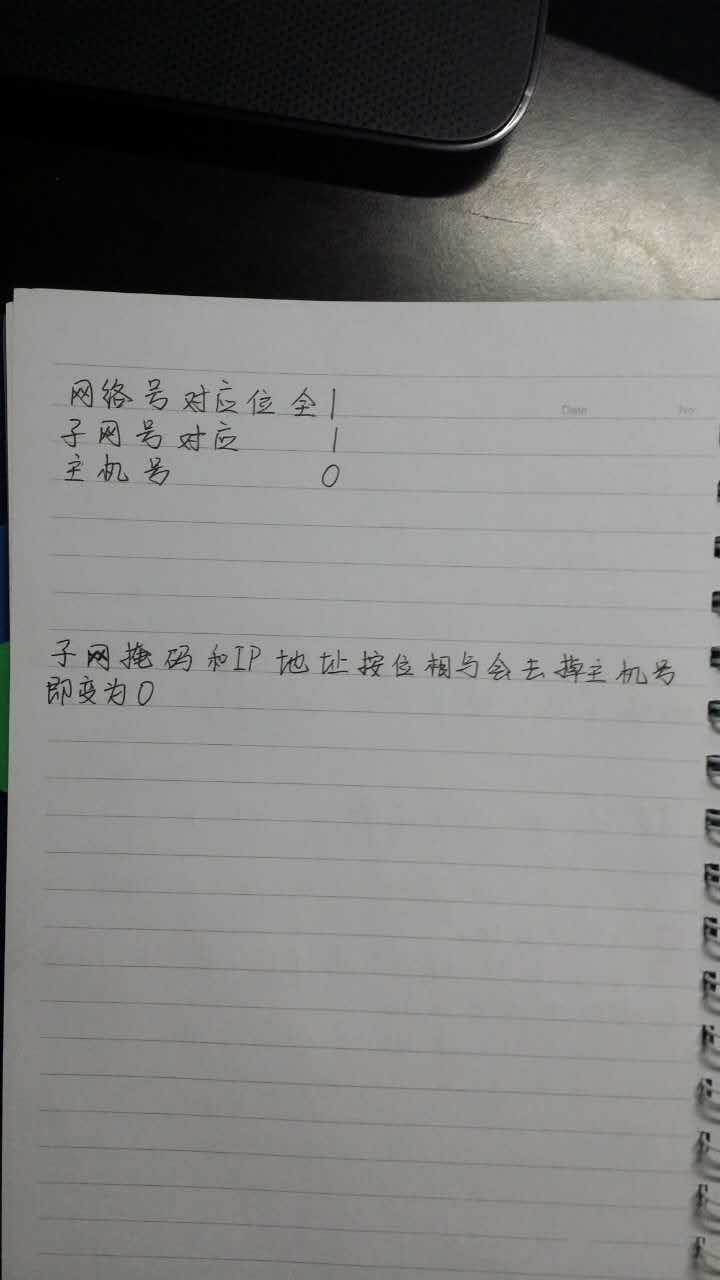 Date No
网络号对应位全1
子网号对应 1
主机号 0
子网掩码和IP地址按位相与会去掉主机号
即变为0